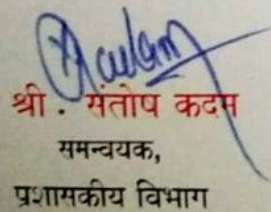 श्री . संतोष कदम
समन्वयक,
प्रशासकीय विभाग